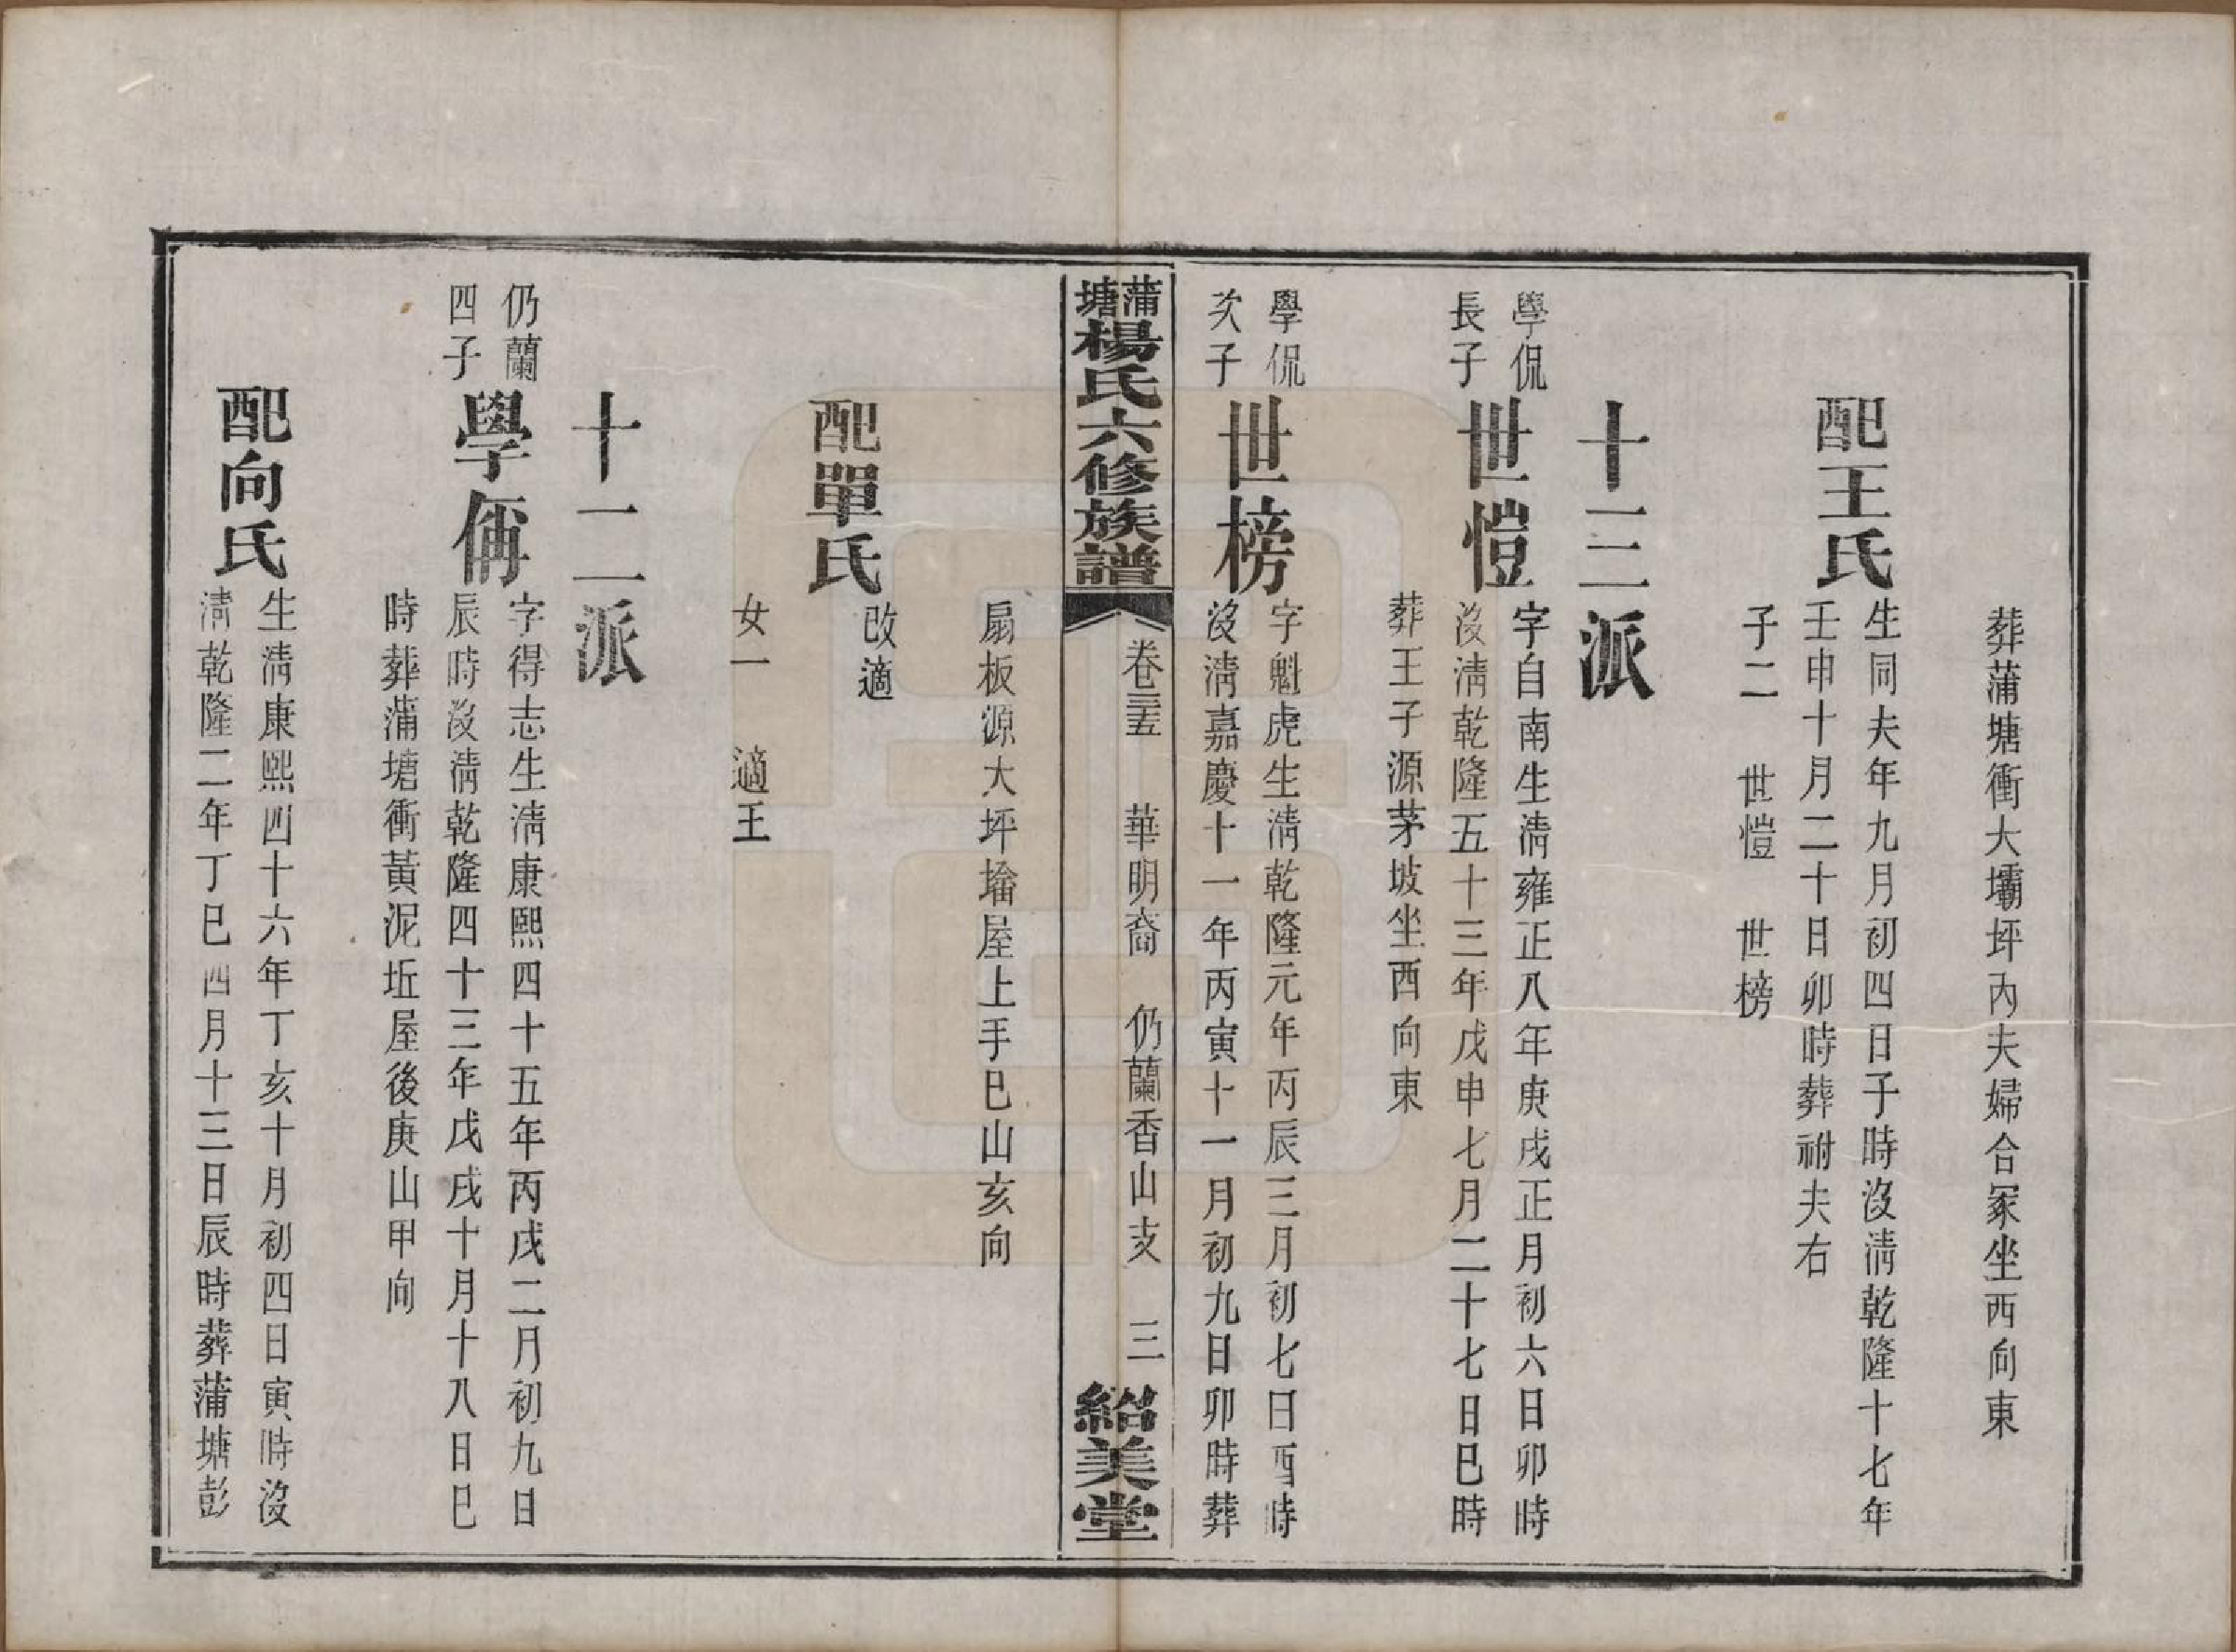 葬蒲塘衝大壩坪內夫婦合冢坐西向東
配王氏
生同夫年九月初四日子時沒淸乾隆十七年
壬申十月二十日卯時葬祔夫右
子二 世愷 世榜
十三派
學侃
長子
世愷
字自南生淸雍正八年庚戌正月初六日卯時
沒淸乾隆五十三年戊申七月二十七日巳時
葬王子源茅坡坐西向東
學侃
次子
世榜
字魁虎生淸乾隆元年丙辰三月初七日酉時
沒淸嘉慶十一年丙寅十一月初九日卯時葬
蒲塘楊氏六修族譜
卷三五 華明裔 仍蘭香山支 三
紹美堂
扇板源大坪墖屋上手巳山亥向
配單氏
改適
女一 適王
十二派
仍蘭
四子
學偁
字得志生淸康熙四十五年丙戌二月初九日
辰時沒淸乾隆四十三年戊戌十月十八日巳
時葬蒲塘衝黃泥坵屋後庚山甲向
配向氏
生淸康熙四十六年丁亥十月初四日寅時沒
淸乾隆二年丁巳四月十三日辰時葬蒲塘彭